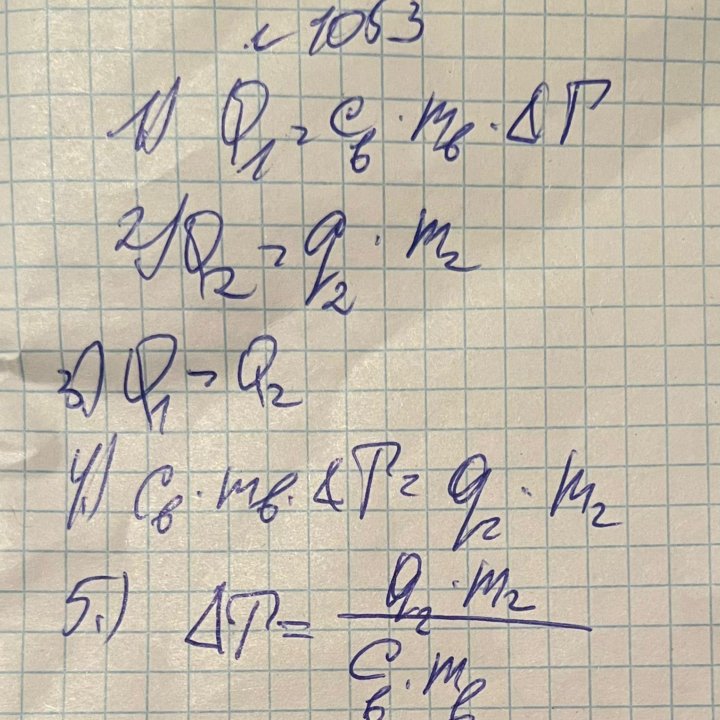 № 1053
1) Q₁ = C_в · m_в · ΔT
2) Q₂ = q₂ · m₂
3.) Q₁ = Q₂
4.) C_в · m_в · ΔT = q₂ · m₂
5.) ΔT = \frac{q₂ · m₂}{C_в · m_в}